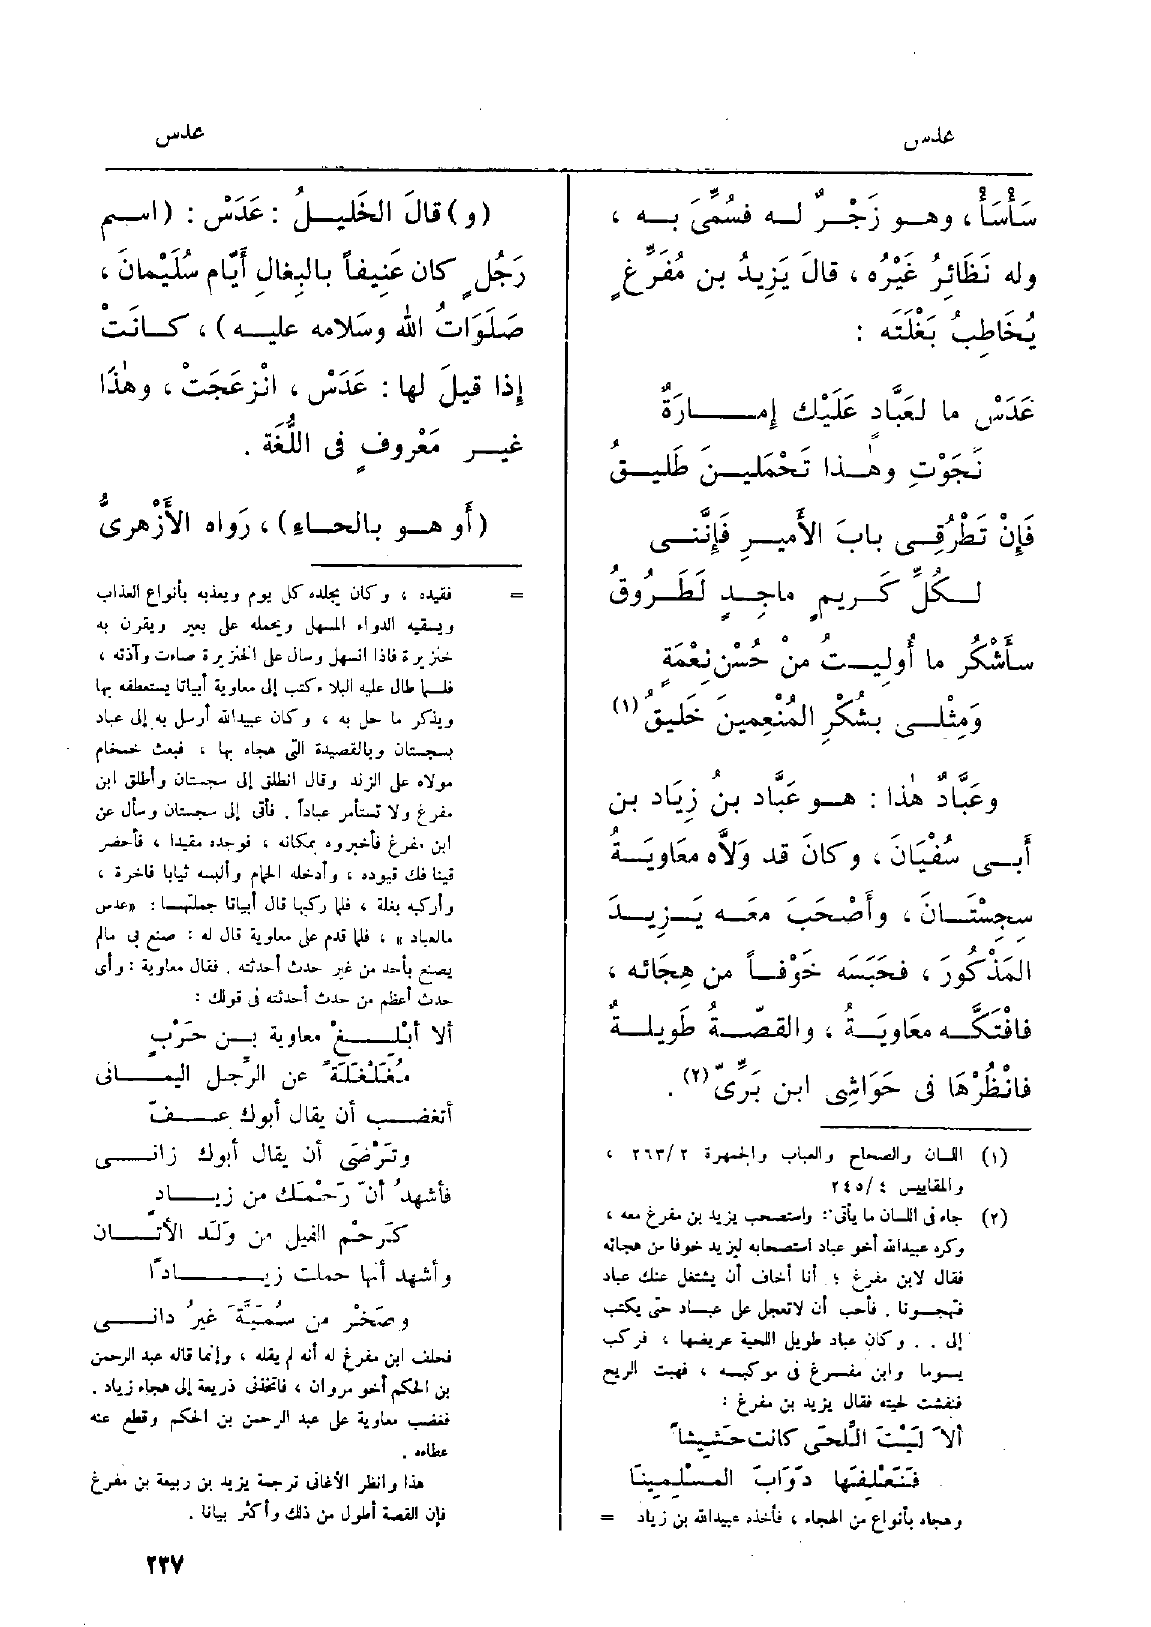 عدس
عدس
سَأْسَأْ ، وهــو زَجْرٌ لــه فسُمِّىَ بــه ،
وله نَظَائِرُ غَيْرُه ، قالَ يَزِيدُ بن مُفَرِّغٍ
يُخَاطِبُ بَغْلَتَه :
عَدَسْ ما لعَبَّادٍ عَلَيْك إمــــارَةٌ
نَجَوْتِ وهٰــذا تَحْمِلــينَ طَلِيــقُ
فَإِنْ تَطْرُقِــى بابَ الأَميــرِ فَإِنَّنــى
لــكُلِّ كَــريمٍ ماجِــدٍ لَطَــرُوقُ
سأَشْكُر ما أُوليــتُ من حُسْنِ نِعْمَةٍ
وَمِثْلــى بشُكْرِ المُنْعِمِينَ خَلِيقُ(١)
وعَبَّادٌ هٰذا : هــو عَبَّاد بنُ زِيَاد بن
أَبــى سُفْيَانَ ، وكَانَ قد وَلاَّه معَاوِيَــةُ
سِجِسْتَــانَ ، وأَصْحَبَ معَــه يَــزِيــدَ
المَذْكُورَ ، فحَبَسَه خَوْفــاً من هِجَائه ،
فافْتَكَّــه معَاوِيَــةُ ، والقِصَّــةُ طَوِيلــةٌ
فانْظُرْهَا فى حَوَاشِى ابن بَرِّىّ(٢) .
(١) اللسان والصحاح والعباب والجمهرة ٢ /٢٦٣ ،
والمقاييس ٤ /٢٤٥
(٢) جاء فى اللسان ما يأتى : واستصحب يزيد بن مفرغ معه ،
وكره عبيدالله أخو عباد استصحابه ليزيد خوفا من هجائه
فقال لابن مفرغ : أنا أخاف أن يشتغل عنك عباد
فتهجــونا . فأحب أن لاتعجل على عبــاد حتى يكتب
إلى . . وكان عباد طويل اللحية عريضها ، فركب
يــوما وابن مفــرغ فى موكبــه ، فهبت الريح
فنفشت لحيته فقال يزيد بن مفرغ :
ألاَ لَيْتَ اللِّحَى كانت حَشِيشاً
فَنَعْلِفَهَا دَوَابَّ المسلمِينَا
وهجاه بأنواع من الهجاء ، فأخذه عبيدالله بن زياد =
(و) قالَ الخَلِيــلُ : عَدَسْ : (اســم
رَجُلٍ كان عَنِيفاً بالبِغَالِ أَيّام سُلَيْمانَ ،
صَلَوَاتُ الله وسَلامه عليــه) ، كــانَتْ
إذا قيلَ لها : عَدَسْ ، انْزعَجَتْ ، وهٰذَا
غيــر مَعْروفٍ فى اللُّغَة .
(أَو هــو بالحــاءِ) ، رَواه الأَزْهرىُّ
= فقيده ، وكان يجلده كل يوم ويعذبه بأنواع العذاب
ويسقيه الدواء المسهل ويحمله على بعير ويقرن به
خنزيرة فاذا انسهل وسال على الخنزيرة صاءت وآذته ،
فلــما طال عليه البلاء كتب إلى معاوية أبياتا يستعطفه بها
ويذكر ما حل به ، وكان عبيدالله أرسل به إلى عباد
بسجستان وبالقصيدة التى هجاه بها ، فبعث خمخام
مولاه على الزند وقال انطلق إلى سجستان وأطلق ابن
مفرغ ولا تستأمر عباداً . فأتى إلى سجستان وسأل عن
ابن مفرغ فأخبروه بمكانه ، فوجده مقيدا ، فأحضر
قينا فك قيوده ، وأدخله الحمام وألبسه ثيابا فاخرة ،
وأركبه بغلة ، فلما ركبها قال أبياتا جملتهــا : «عدس
مالعباد » ، فلما قدم على معاوية قال له : صنع بى مالم
يصنع بأحد من غير حدث أحدثته . فقال معاوية : وأى
حدث أعظم من حدث أحدثته فى قولك :
ألا أَبْلِــغْ معاوية بــن حَرْبٍ
مُغَلْغَلَةً عن الرَّجلِ اليمــانى
أتغضــب أن يقال أبوك عــفّ
وتَرْضَى أن يقال أبوك زانــى
فأشهدُ أنّ رَحْمَك من زيــادٍ
كَرحْمِ الفيل من وَلَد الأتــان
وأشهد أنها حملت زيــاداً
وصَخْر من سُمَيَّةَ غيرُ دانــى
فحلف ابن مفرغ له أنه لم يقله ، وإنما قاله عبد الرحمن
بن الحكم أخو مروان ، فاتخذنى ذريعة إلى هجاء زياد .
فغضب معاوية على عبد الرحمن بن الحكم وقطع عنه
عطاءه .
هذا وانظر الأغانى ترجمة يزيد بن ربيعة بن مفرغ
فإن القصة أطول من ذلك وأكثر بيانا .
٢٣٧